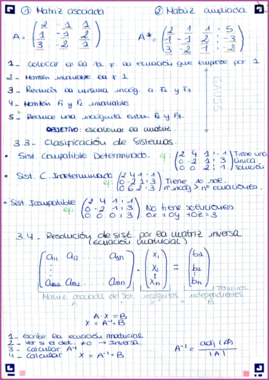 ① Matriz asociada ② Matriz ampliada
A = ( 2 1 1
1 -1 2
3 -2 1 )
A* = ( 2 1 1 : 5
1 -1 2 : -3
3 -2 1 : -2 )
GAUSS
1 - Colocar en la 1ª la ecuación que empiece por 1
2 - Mantén invariable la F 1
3 - Reducir la misma incóg. a F2 y F3
4 - Mantén F1 y F2 invariable
5 - Reduce una incógnita entre F2 y F3.
OBJETIVO: escalonar la matriz.
3.3. - Clasificación de Sistemas.
• Sist. Compatible Determinado. ej: ( 2 4 1 : -1
0 -2 1 : 3
0 0 1 : 3 ) Tiene una única solución
• Sist. C. Indeterminado ( 2 4 1 : 1
0 2 1 : 3
0 6 2 : 3 ) Tiene ∞ sol.
nº incóg > nº ecuaciones.
• Sist. Incompatible ej: ( 2 4 1 : 1
0 -2 1 : 3
0 0 0 : 3 ) No tiene soluciones
0x + 0y + 0z = 3
3.4. - Resolución de sist. por la matriz inversa
(ecuación matricial)
( a11 a12 ... a1n
am1 am2 ... amn ) · ( x1
x2
xn ) = ( b1
b2
bn )
Matriz asociada del Sist. incógnitas Términos independientes
A · X = B
X = A⁻¹ · B
1 - escribir la ecuación matricial
2 - ver si el det. ≠ 0 → Inversa
3 - calcular A⁻¹
4 - calcular X = A⁻¹ · B
A⁻¹ = adj (At) / |A|